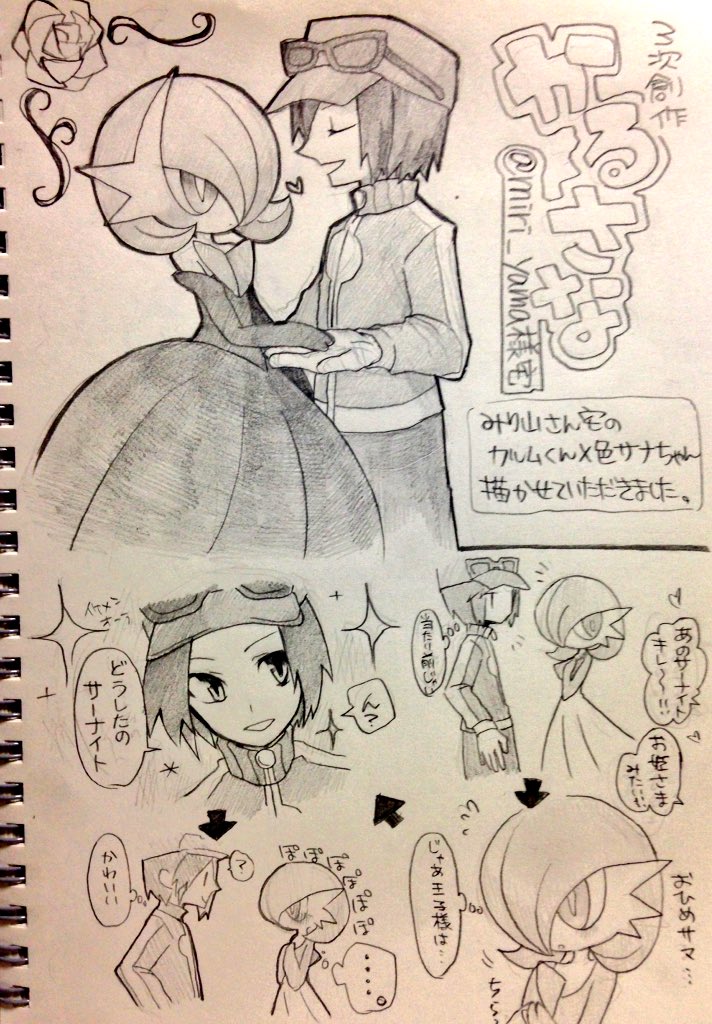 3次創作
@miri_yama様宅
みり山さん宅の
カルムくん×色サナちゃん
描かせていただきました。
あのサーナイト
キレ〜〜!!
お姫さま
みたい!!
おひめサマ…
じゃあ王子様は…
ちらっ
ん?
どうしたの
サーナイト
イケメン
オーラ
ぽぽぽぽぽぽ
・・・・。
?
かわいい